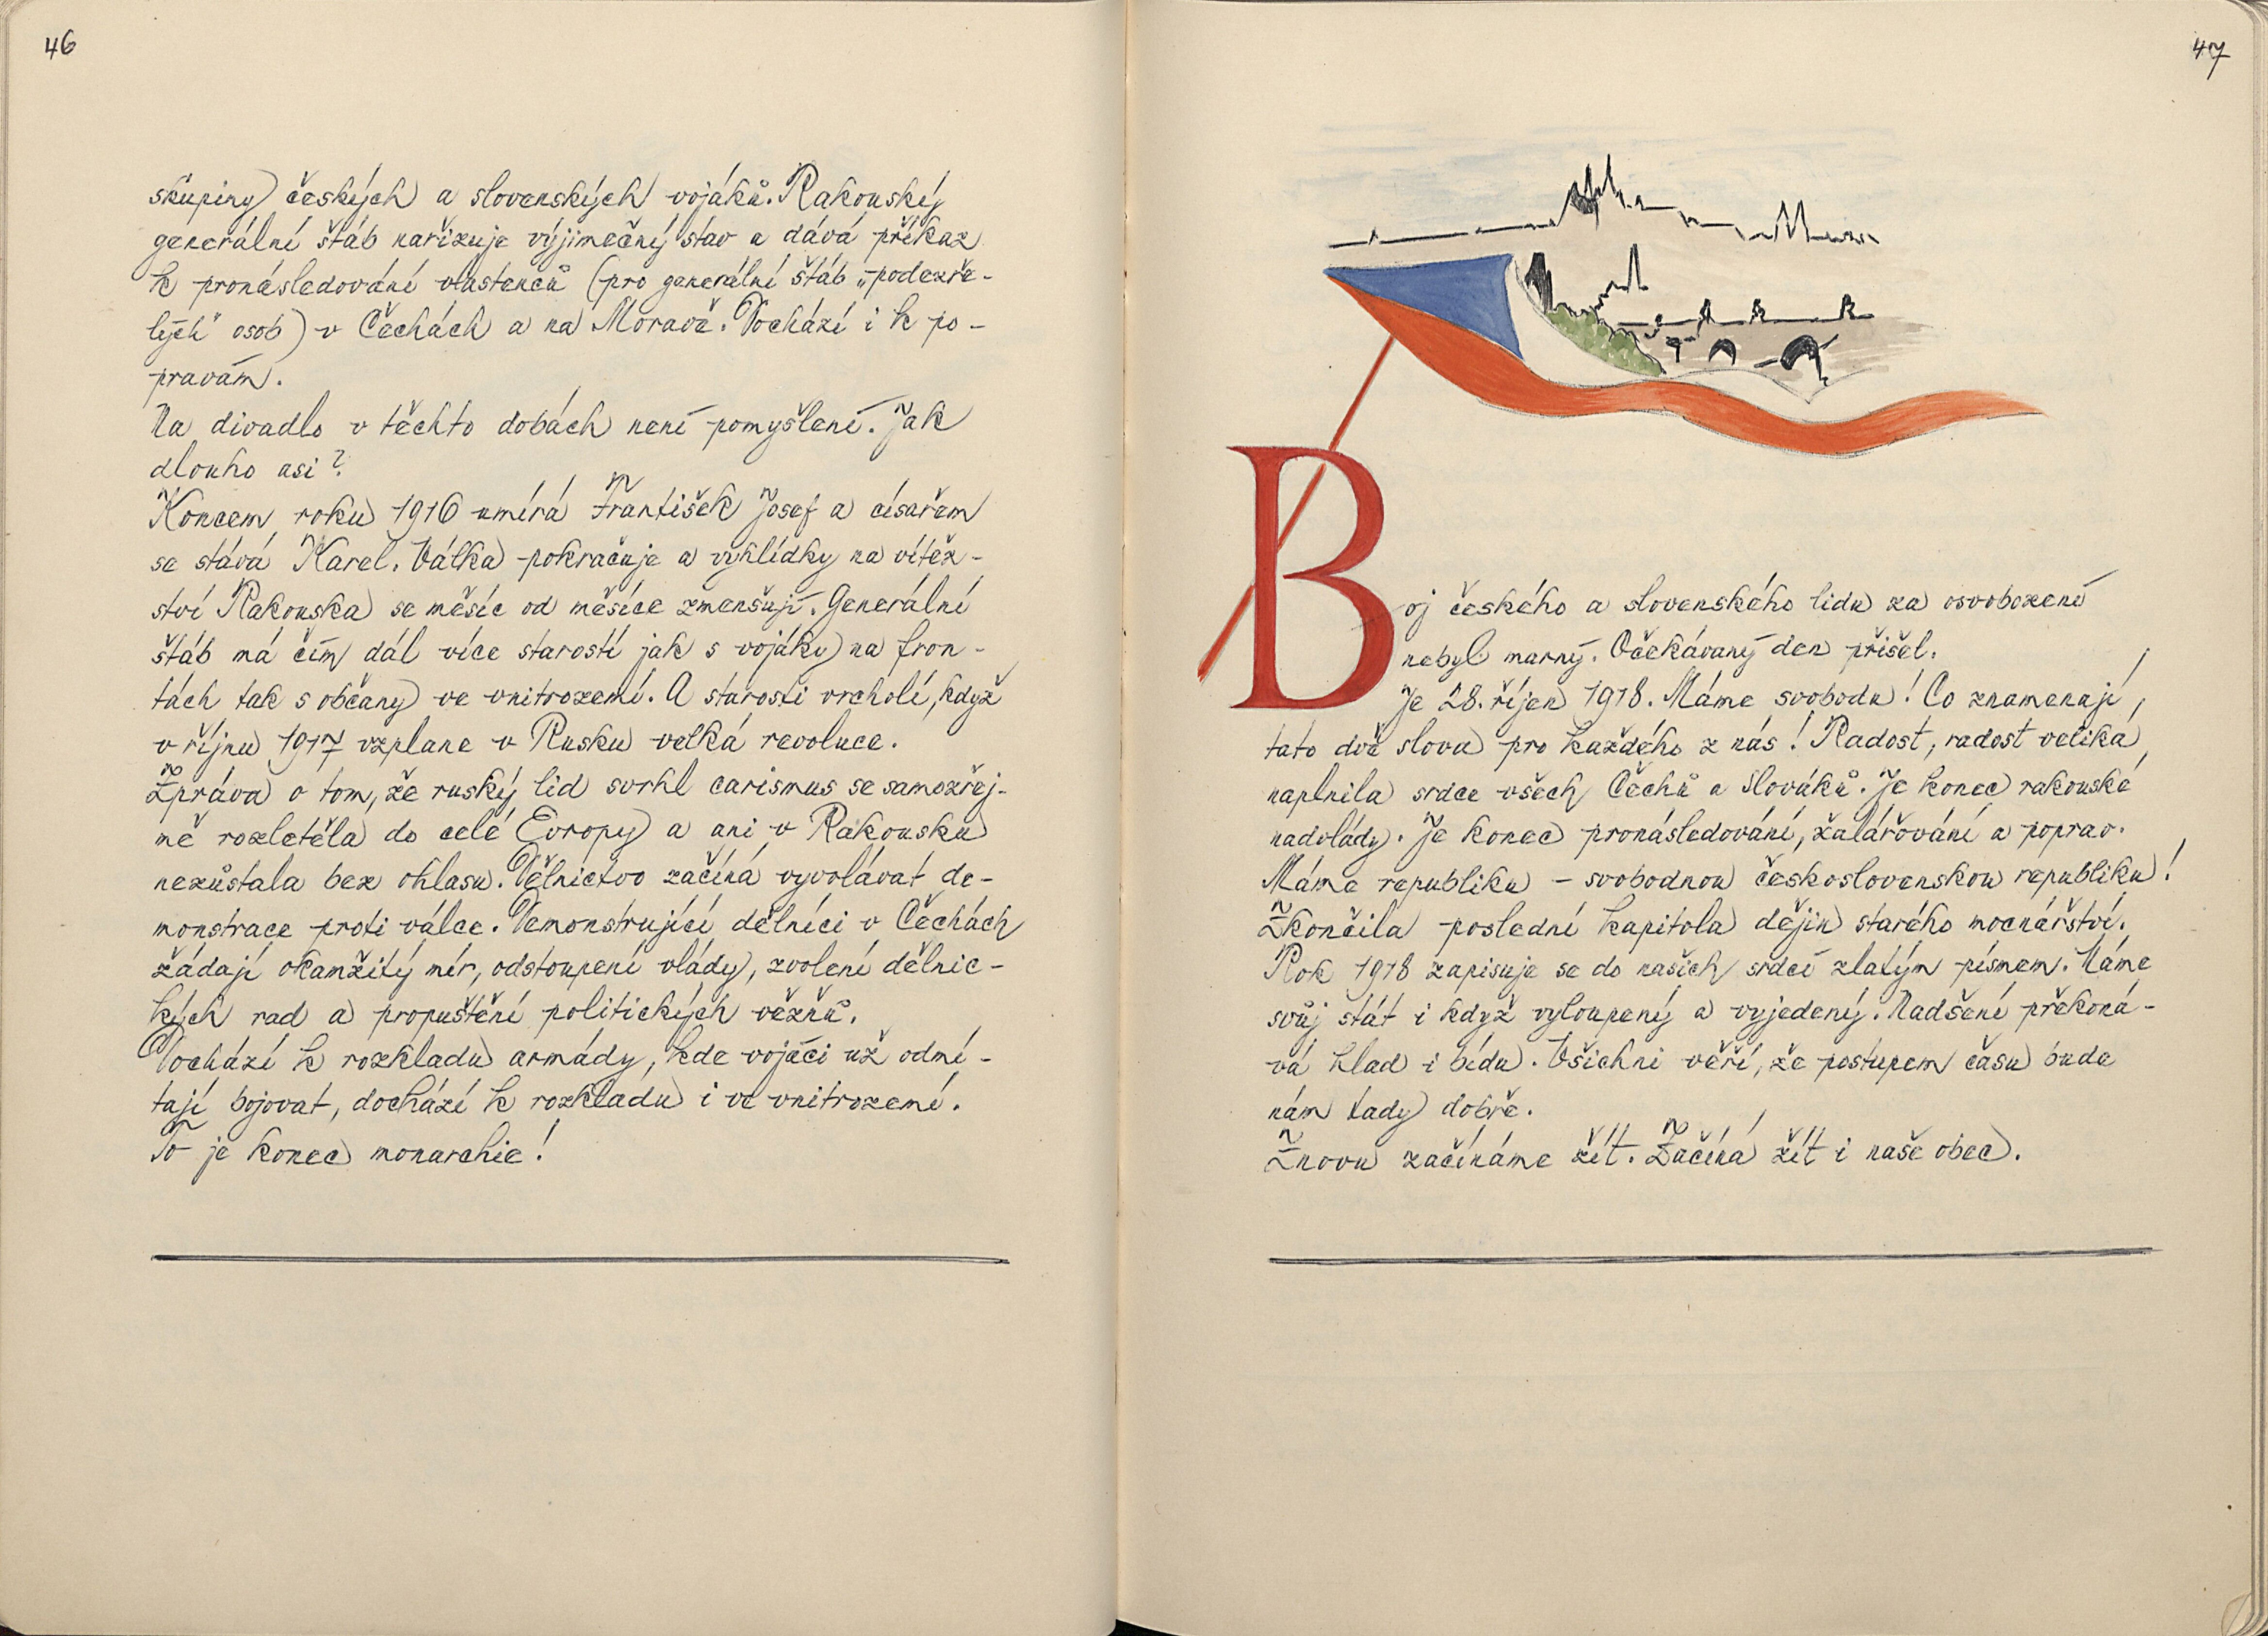 46
skupiny) českých a slovenských vojáků. Rakouský
generální štáb nařizuje výjimečný stav a dává příkaz
k pronásledování vlastenců (pro generální štáb „podezře-
lých" osob) v Čechách a na Moravě. Dochází i k po-
pravám.
Na divadlo v těchto dobách není pomyšlení. Jak
dlouho asi?
Koncem roku 1916 umírá František Josef a císařem
se stává Karel. Válka pokračuje a vyhlídky na vítěz-
ství Rakouska se měsíc od měsíce zmenšují. Generální
štáb má čím dál více starostí jak s vojáky na fron-
tách tak s občany ve vnitrozemí. A starosti vrcholí, když
v říjnu 1917 vzplane v Rusku velká revoluce.
Zpráva o tom, že ruský lid svrhl carismus se samozřej-
mě rozletěla do celé Evropy a ani v Rakousku
nezůstala bez ohlasu. Dělnictvo začíná vyvolávat de-
monstrace proti válce. Demonstrující dělníci v Čechách
žádají okamžitý mír, odstoupení vlády, zvolení dělnic-
kých rad a propuštění politických věžňů.
Dochází k rozkladu armády, kde vojáci už odmí-
tají bojovat, dochází k rozkladu i ve vnitrozemí.
To je konec monarchie!
47
Boj českého a slovenského lidu za osvobození
nebyl marný. Očekávaný den přišel.
Je 28. říjen 1918. Máme svobodu! Co znamenají
tato dvě slova pro každého z nás! Radost, radost veliká
naplnila srdce všech Čechů a Slováků. Je konec rakouské
nadvlády. Je konec pronásledování, žalářování a poprav.
Máme republiku - svobodnou československou republiku!
Zkončila poslední kapitola dějin starého mocnářství.
Rok 1918 zapisuje se do našich srdcí zlatým písmem. Máme
svůj stát i když vyloupený a vyjedený. Nadšení překoná-
vá hlad i bídu. Všichni věří, že postupem času bude
nám tady dobře.
Znovu začínáme žít. Začíná žít i naše obec.